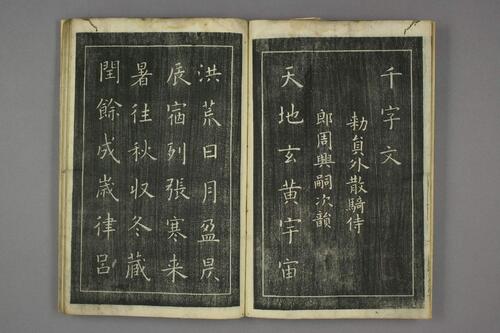 千字文
勅員外散騎侍
郎周興嗣次韻
天地玄黄宇宙
洪荒日月盈昃
辰宿列張寒来
暑往秋収冬蔵
閏餘成歳律呂